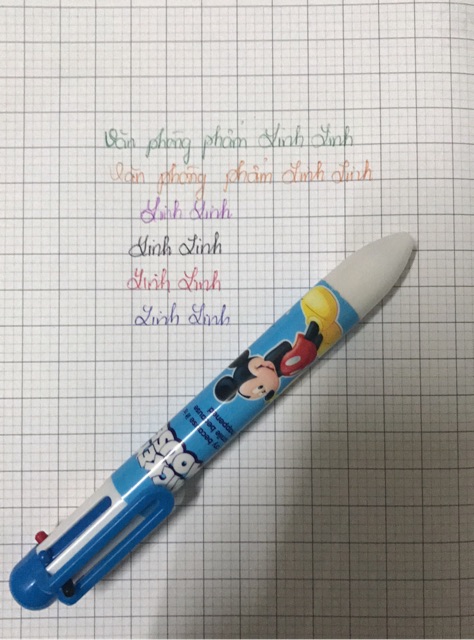 Văn phòng phẩm Linh Linh
Văn phòng phẩm Linh Linh
Linh Linh
Linh Linh
Linh Linh
Linh Linh